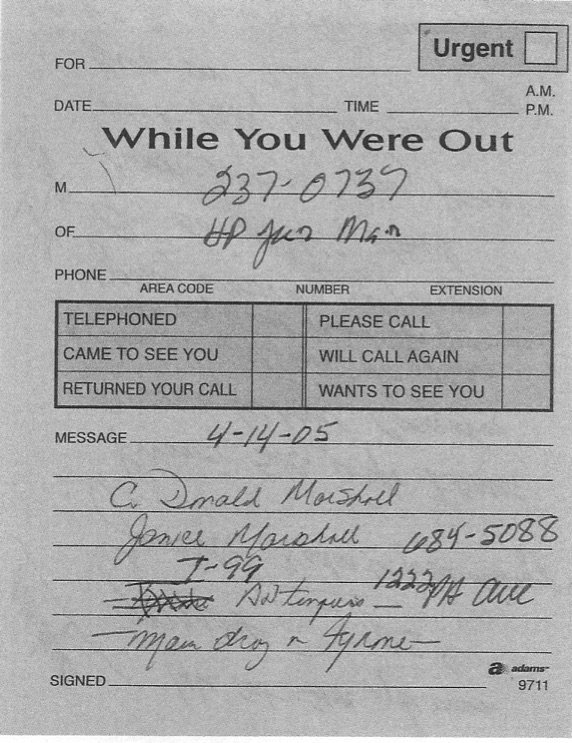 Urgent
FOR
A.M.
DATE TIME P.M.
While You Were Out
M 237-0737
OF HP Jun Man
PHONE
AREA CODE NUMBER EXTENSION
TELEPHONED PLEASE CALL
CAME TO SEE YOU WILL CALL AGAIN
RETURNED YOUR CALL WANTS TO SEE YOU
MESSAGE 4-14-05
C. Donald Marshall
Janice Marshall 684-5088
T-99
1222 PA Ave
main drag n Tyrone
adams
SIGNED 9711